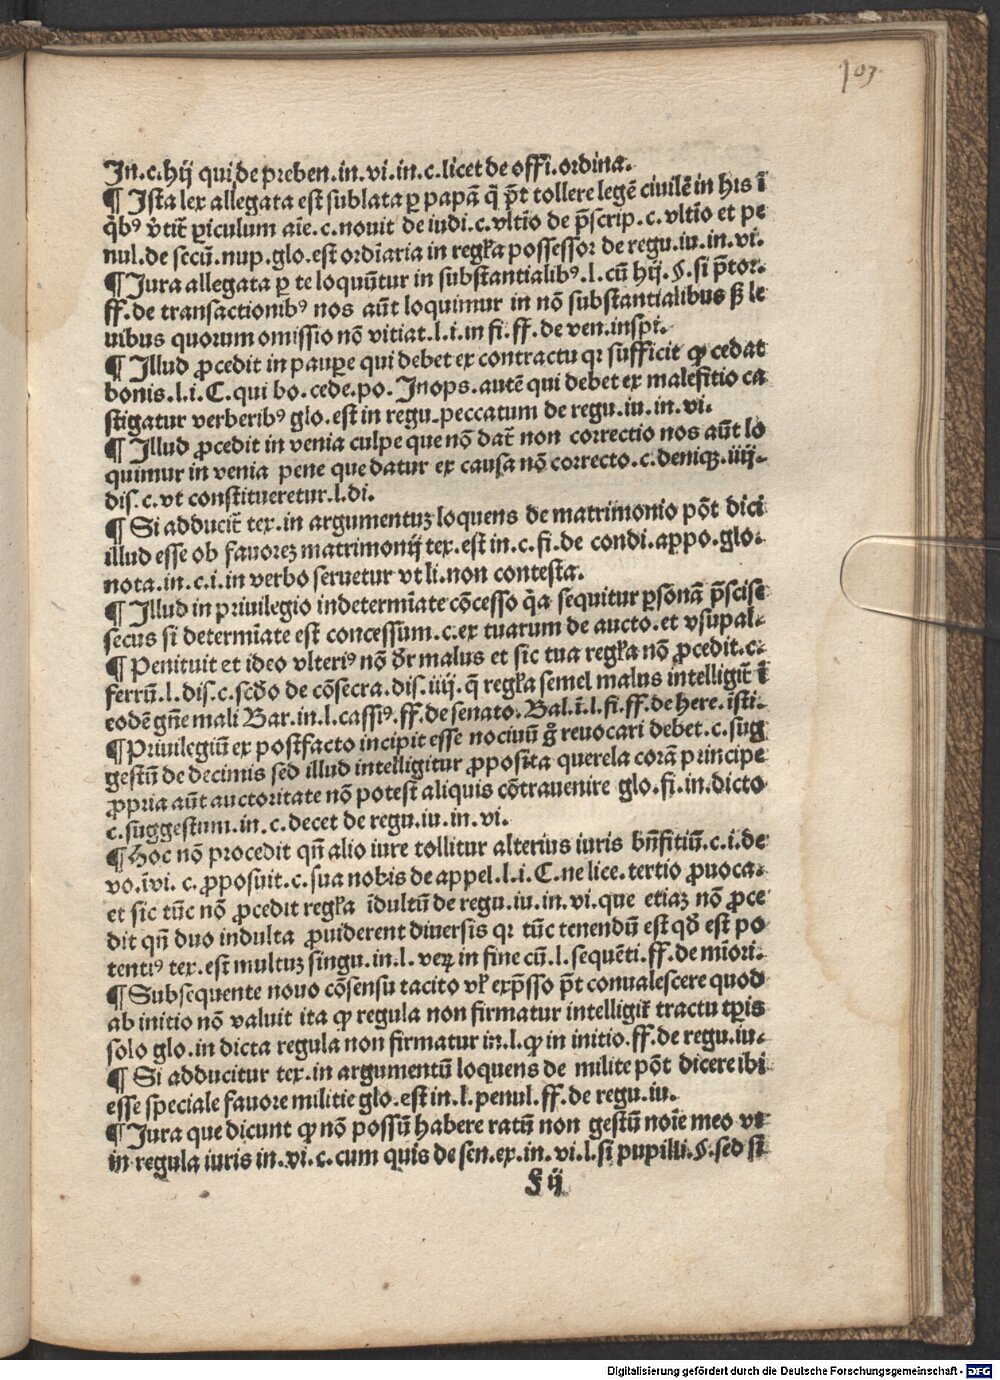 103
In.c.hij qui de preben.in.vi.in.c.licet de offi.ordina.
¶ Ista lex allegata est sublata ꝑ papã q̃ põt tollere legẽ ciuilẽ in his ĩ
q̃bꝰ v̾tit̃ ꝑiculum aĩe.c.nouit de iudi.c.vltĩo de p̃scrip.c.vltĩo et pe
nul.de secũ.nup.glo.est ordĩaria in regľa possessor de regu.iu.in.vi.
¶ Jura allegata ꝑ te loquũtur in substantialibꝰ.l.cũ hij.§.si p̃tor.
ff.de transactionibꝰ nos aũt loquimur in nõ substantialibus sꝫ le
uibus quorum omissio nõ vitiat.l.i.in fi.ff.de ven.inspi.
¶ Illud ꝓcedit in pauꝑe qui debet ex contractu qr sufficit ꝙ cedat
bonis.l.i.C.qui bo.cede.po.Inops.autẽ qui debet ex malefitio ca
stigatur verberibꝰ glo.est in regu.peccatum de regu.iu.in.vi.
¶ Illud ꝓcedit in venia culpe que nõ dat̃ non correctio nos aũt lo
quimur in venia pene que datur ex causa nõ correcto.c.deniqꝫ.iiij.
dis.c.vt constitueretur.l.di.
¶ Si adducit̃ tex.in argumentuꝫ loquens de matrimonio põt dici
illud esse ob fauoreꝫ matrimonij tex.est in.c.fi.de condi.appo.glo.
nota.in.c.i.in verbo seruetur vt li.non contesta.
¶ Illud in priuilegio indetermĩate cõcesso q̃a sequitur ꝑsonã p̃scise
secus si determĩate est concessum.c.ex tuarum de aucto.et vsupal.
¶ Penituit et ideo vlteriꝰ nõ dr̃ malus et sic tua regľa nõ ꝓcedit.c.
ferrũ.l.dis.c.scďo de cõsecra.dis.iiij.q̃ regľa semel malus intelligit̃ ĩ
eodẽ gñe mali Bar.in.l.cassiꝰ.ff.de senato.Bal.ĩ.l.fi.ff.de here.ĩsti.
¶ Priuilegiũ ex postfacto incipit esse nociuũ g̊ reuocari debet.c.sug
gestũ de decimis sed illud intelligitur ꝓposita querela corã principe
ꝓpria aũt auctoritate nõ potest aliquis cõtrauenire glo.fi.in.dicto
c.suggestum.in.c.decet de regu.iu.in.vi.
¶ Hoc nõ procedit qñ alio iure tollitur alterius iuris bñfitiũ.c.i.de
vo.ĩvi. c.ꝓposuit.c.sua nobis de appel.l.i.C.ne lice.tertio ꝓuoca.
et sic tũc nõ ꝓcedit regľa ĩdultũ de regu.iu.in.vi.que etiaꝫ nõ ꝓce
dit qñ duo indulta ꝓuiderent diuersis qr tũc tenendũ est qď est po
tentiꝰ tex.est multuꝫ singu.in.l.veꝝ in fine cũ.l.sequẽti.ff.de mĩori.
¶ Subsequente nouo cõsensu tacito vľ exp̃sso põt conualescere quod
ab initio nõ valuit ita ꝙ regula non firmatur intelligit̃ tractu tꝑis
solo glo.in dicta regula non firmatur in.l.ꝙ in initio.ff.de regu.iu.
¶ Si adducitur tex.in argumentũ loquens de milite põt dicere ibi
esse speciale fauore militie glo.est in.l.penul.ff.de regu.iu.
¶ Jura que dicunt ꝙ nõ possũ habere ratũ non gestũ noĩe meo vt
in regula iuris in.vi.c.cum quis de sen.ex.in.vi.l.si pupilli.§.sed si
§ ij
Digitalisierung gefördert durch die Deutsche Forschungsgemeinschaft - DFG